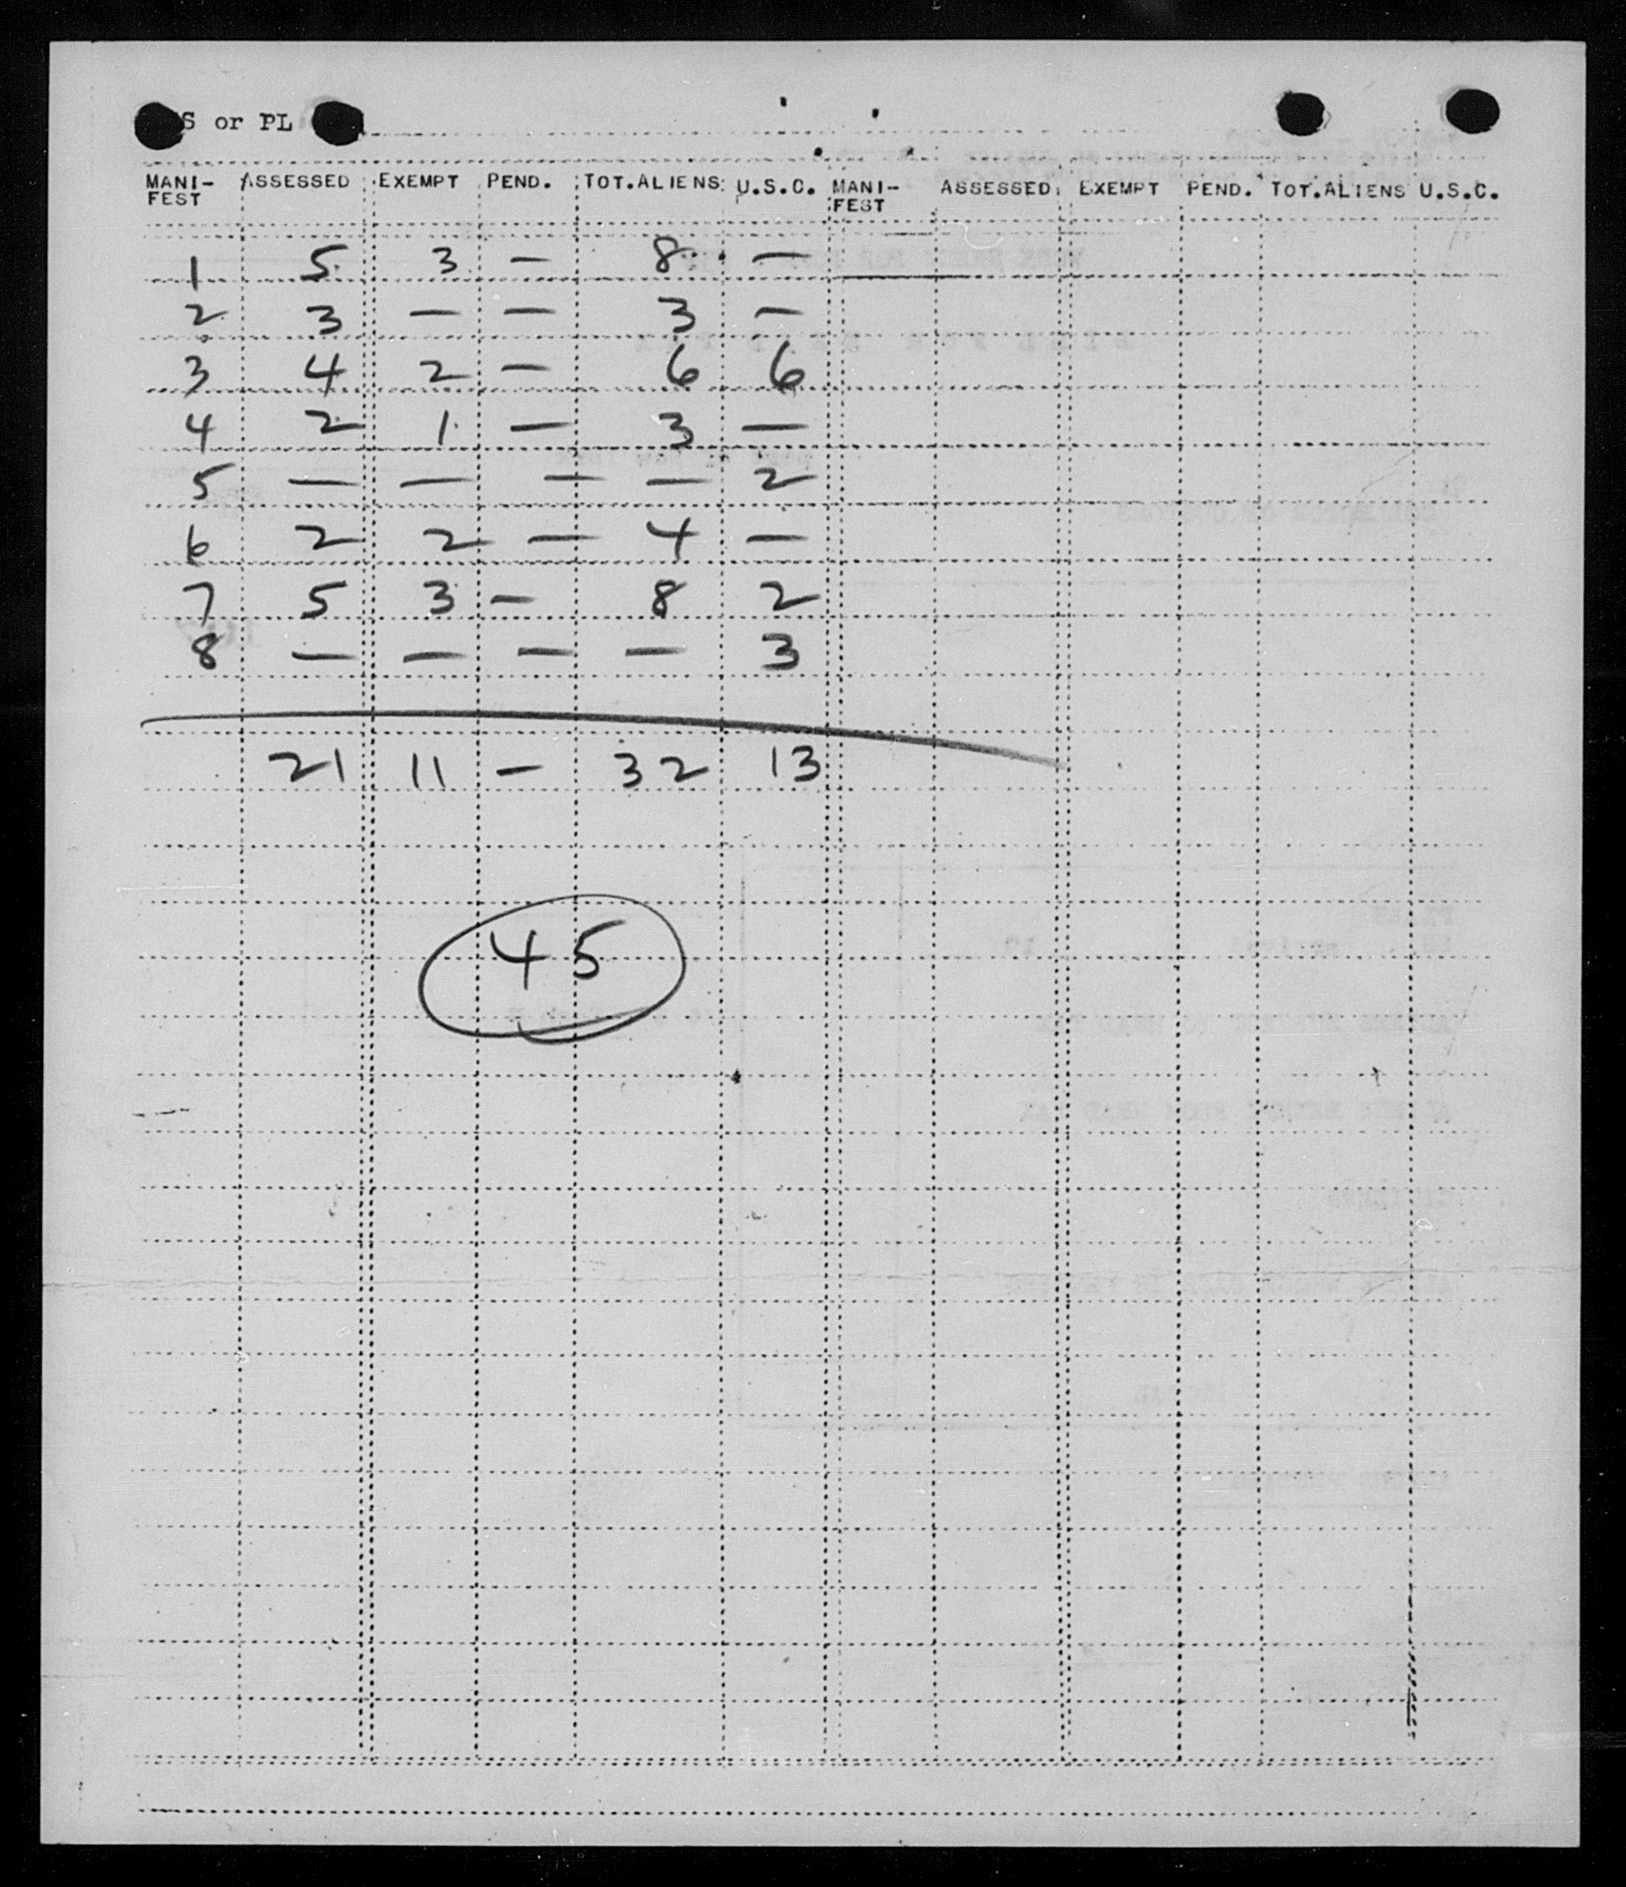 S or PL
MANI- ASSESSED EXEMPT PEND. TOT.ALIENS U.S.C. MANI- ASSESSED EXEMPT PEND. TOT.ALIENS U.S.C.
FEST FEST
1 5 3 — 8 —
2 3 — — 3 —
3 4 2 — 6 6
4 2 1 — 3 —
5 — — — — 2
6 2 2 — 4 —
7 5 3 — 8 2
8 — — — — 3
21 11 — 32 13
45